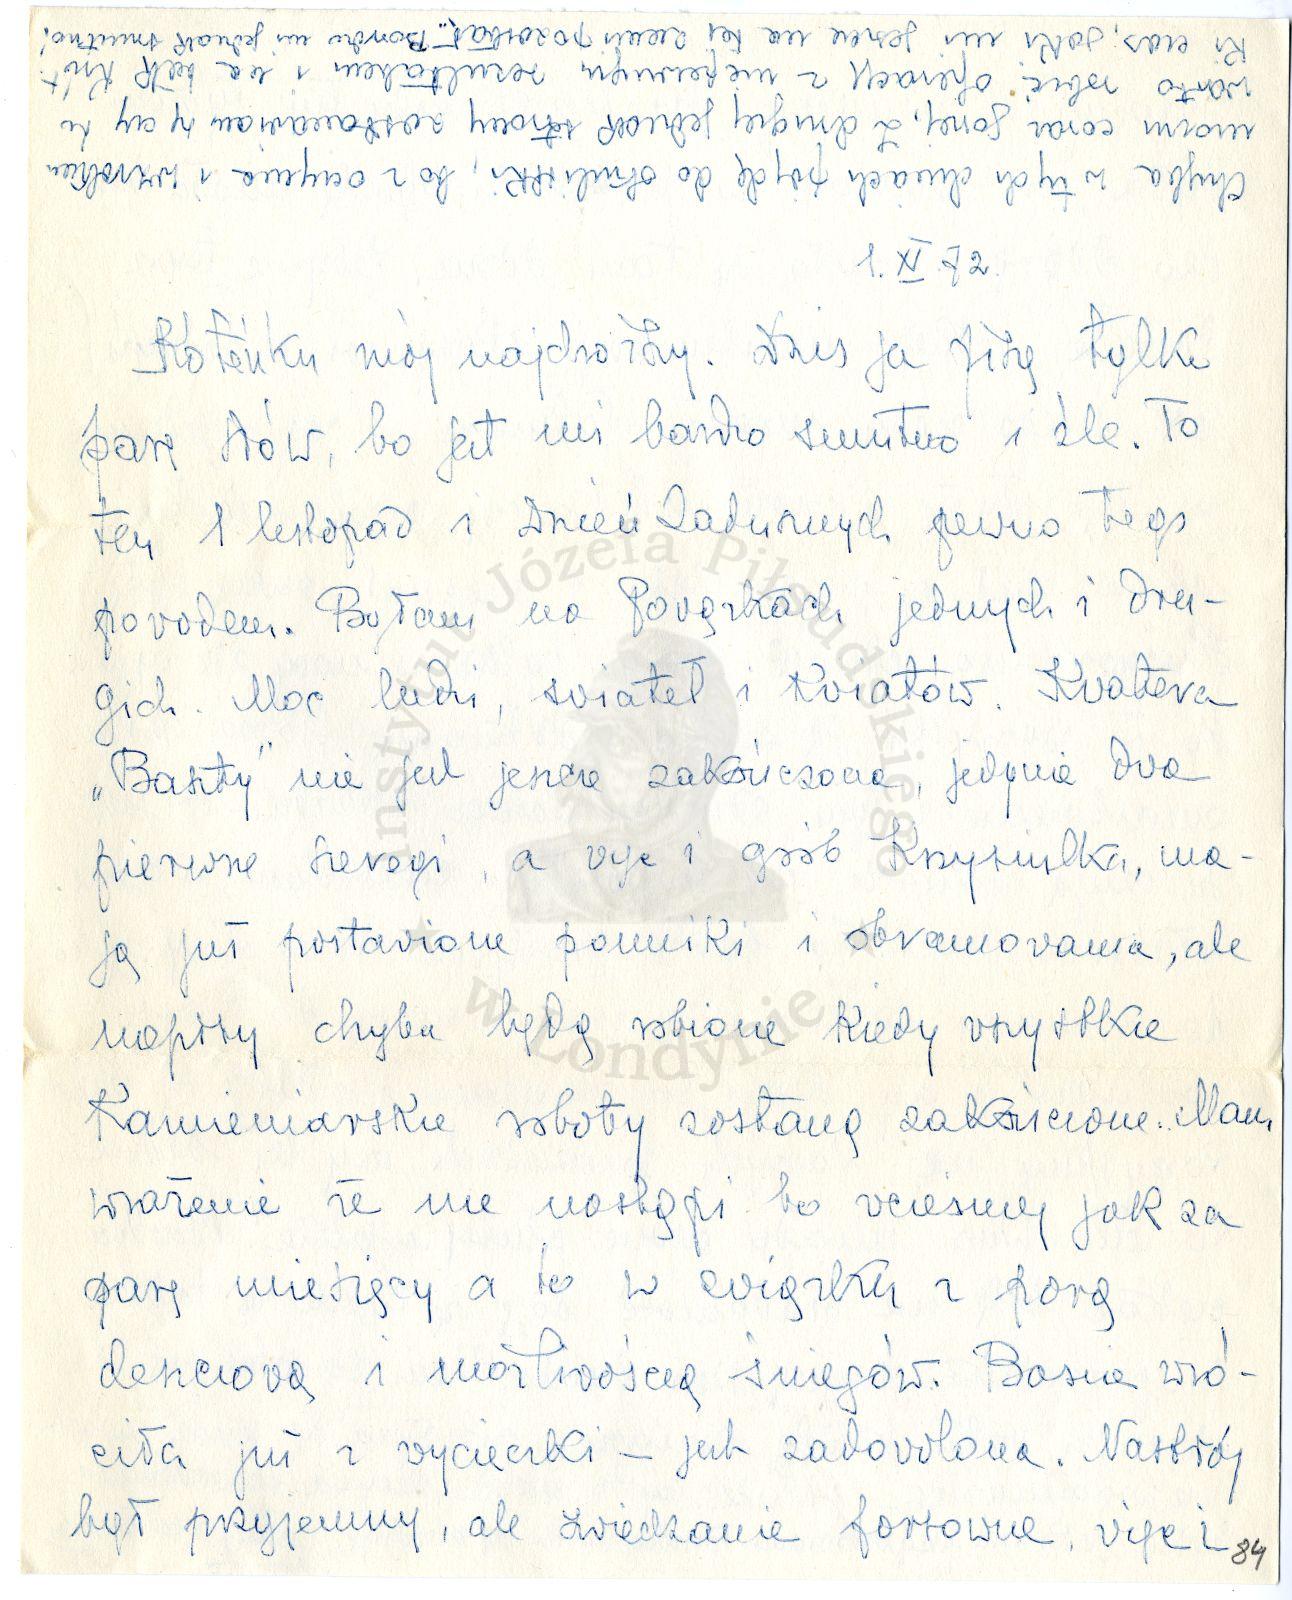 Chyba w tych dniach pójdę do okulistki, bo z oczyma i wzrokiem
moim coraz gorzej, z drugiej jednak strony zastanawiam się czy tu
warto robić operację z niepewnym rezultatem i na tak krót-
ki czas, jaki mi jeszcze na tej ziemi pozostał. Bardzo mi jednak smutno!
1.XI.72.
Koteńku mój najdroższy. Dziś ja piszę tylko
parę słów, bo jest mi bardzo smutno i źle. To
ten 1 listopad i Dzień Zadusznych pewno tego
powodem. Byłam na Powązkach jednych i dru-
gich. Moc ludzi, świateł i kwiatów. Kwatera
„Baszty" nie jest jeszcze zakończona, jedynie dwa
pierwsze szeregi, a więc i grób Krzysiulka, ma-
ją już postawione pomniki i obramowania, ale
napisy chyba będą robione kiedy wszystkie
kamieniarskie roboty zostaną zakończone. Mam
wrażenie że nie nastąpi to wcześniej jak za
parę miesięcy a to w związku z porą
deszczową i możliwością śniegów. Basia wró-
ciła już z wycieczki – jest zadowolona. Nastrój
był przyjemny, ale zwiedzanie forsowne, więc i
84
Instytut Józefa Piłsudskiego
w Londynie